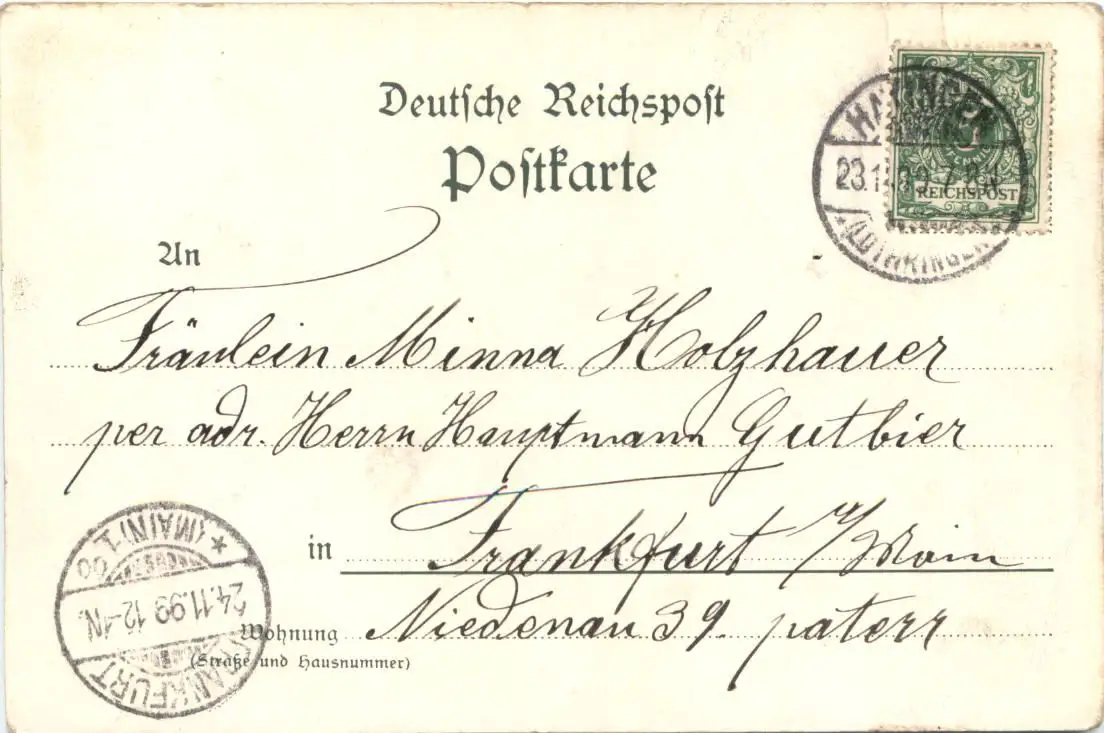 Deutsche Reichspost
Postkarte
HAYINGEN
23.11.99 7-8N
* (LOTHRINGEN) *
5
PFENNIG
REICHSPOST
An
Fräulein Minna Holzhauer
per adr. Herrn Hauptmann Gutbier
in Frankfurt a/Main
Wohnung Niedenau 39. paterr
(Straße und Hausnummer)
FRANKFURT
24.11.99 12-1N.
* (MAIN) 1.